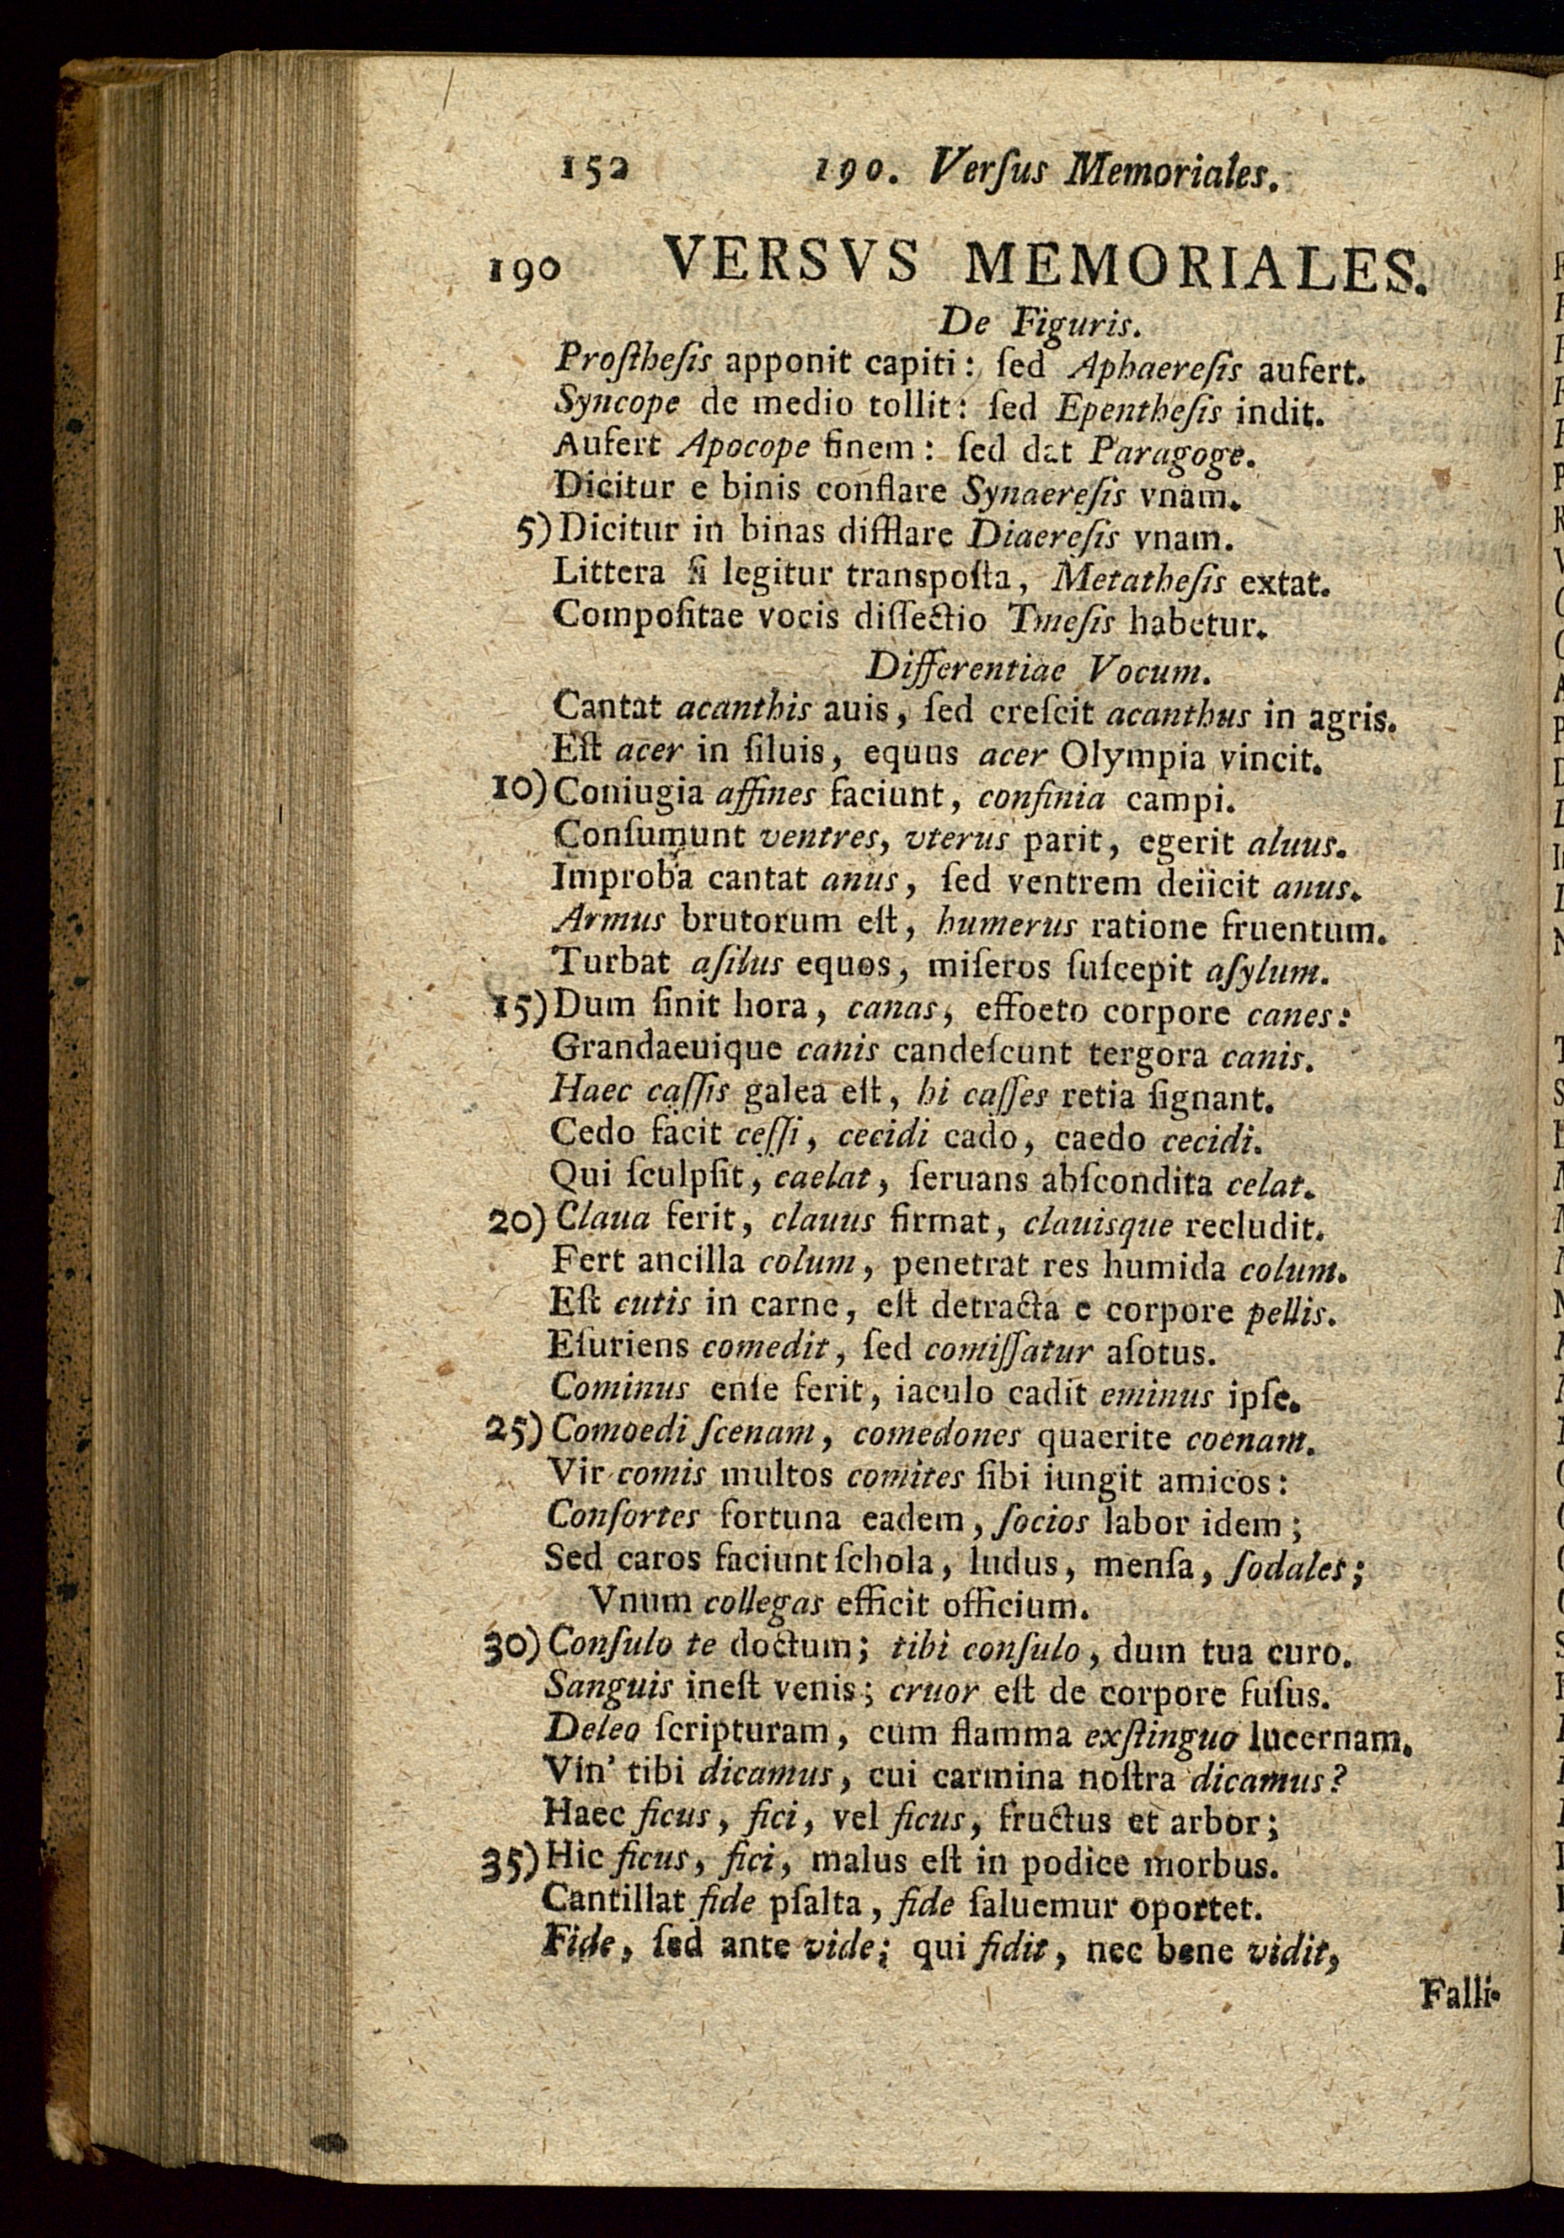 152 190. Verſus Memoriales.
190 VERSVS MEMORIALES.
De Figuris.
Proſtheſis apponit capiti: ſed Aphaereſis aufert.
Syncope de medio tollit: ſed Epentheſis indit.
Aufert Apocope finem: ſed dat Paragoge.
Dicitur e binis conflare Synaereſis vnam.
5) Dicitur in binas difflare Diaereſis vnam.
Littera ſi legitur transpoſta, Metatheſis extat.
Compoſitae vocis diſſectio Tmeſis habetur.
Differentiae Vocum.
Cantat acanthis auis, ſed creſcit acanthus in agris.
Eſt acer in ſiluis, equus acer Olympia vincit.
10) Coniugia affines faciunt, confinia campi.
Conſumunt ventres, vterus parit, egerit aluus.
Improba cantat anus, ſed ventrem deiicit anus.
Armus brutorum eſt, humerus ratione fruentum.
Turbat aſilus equos, miſeros ſuſcepit aſylum.
15) Dum ſinit hora, canas, effoeto corpore canes:
Grandaeuique canis candeſcunt tergora canis.
Haec caſſis galea eſt, hi caſſes retia ſignant.
Cedo facit ceſſi, cecidi cado, caedo cecidi.
Qui ſculpſit, caelat, ſeruans abſcondita celat.
20) Claua ferit, clauus firmat, clauisque recludit.
Fert ancilla colum, penetrat res humida colum.
Eſt cutis in carne, eſt detracta e corpore pellis.
Eſuriens comedit, ſed comiſſatur aſotus.
Cominus enſe ferit, iaculo cadit eminus ipſe.
25) Comoedi ſcenam, comedones quaerite coenam.
Vir comis multos comites ſibi iungit amicos:
Conſortes fortuna eadem, ſocios labor idem;
Sed caros faciunt ſchola, ludus, menſa, ſodales;
Vnum collegas efficit officium.
30) Conſulo te doctum; tibi conſulo, dum tua curo.
Sanguis ineſt venis; cruor eſt de corpore fuſus.
Deleo ſcripturam, cum flamma exſtinguo lucernam.
Vin' tibi dicamus, cui carmina noſtra dicamus?
Haec ficus, fici, vel ficus, fructus et arbor;
35) Hic ficus, fici, malus eſt in podice morbus.
Cantillat fide pſalta, fide ſaluemur oportet.
Fide, ſed ante vide; qui fidit, nec bene vidit,
Falli-